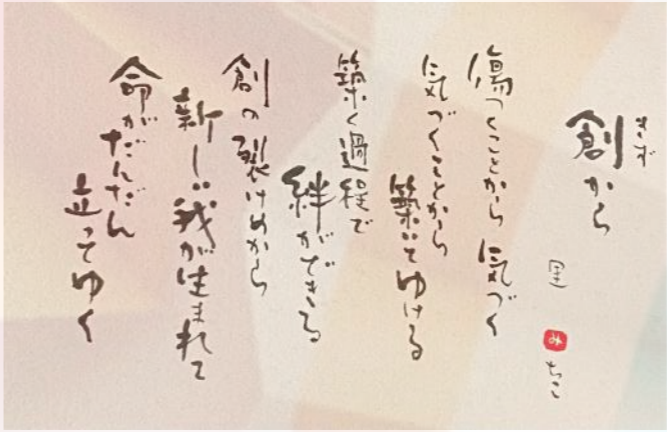 きず
創から
里 みちこ
傷つくことから 気づく
気づくことから
築いてゆける
築く過程で
絆ができる
創の裂けめから
新しい我が生まれて
命がだんだん
立ってゆく